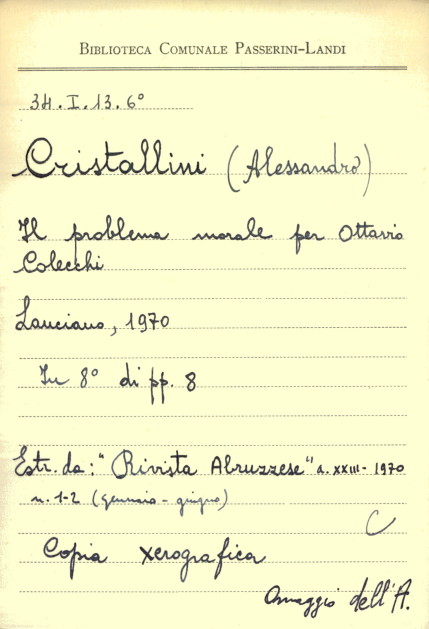 BIBLIOTECA COMUNALE PASSERINI-LANDI
34.I.13.6°
Cristallini (Alessandro)
Il problema morale per Ottavio
Colecchi
Lanciano, 1970
In 8° di pp. 8
Estr. da: "Rivista Abruzzese" a. XXIII - 1970
n. 1-2 (gennaio - giugno)
C
Copia xerografica
Omaggio dell'A.